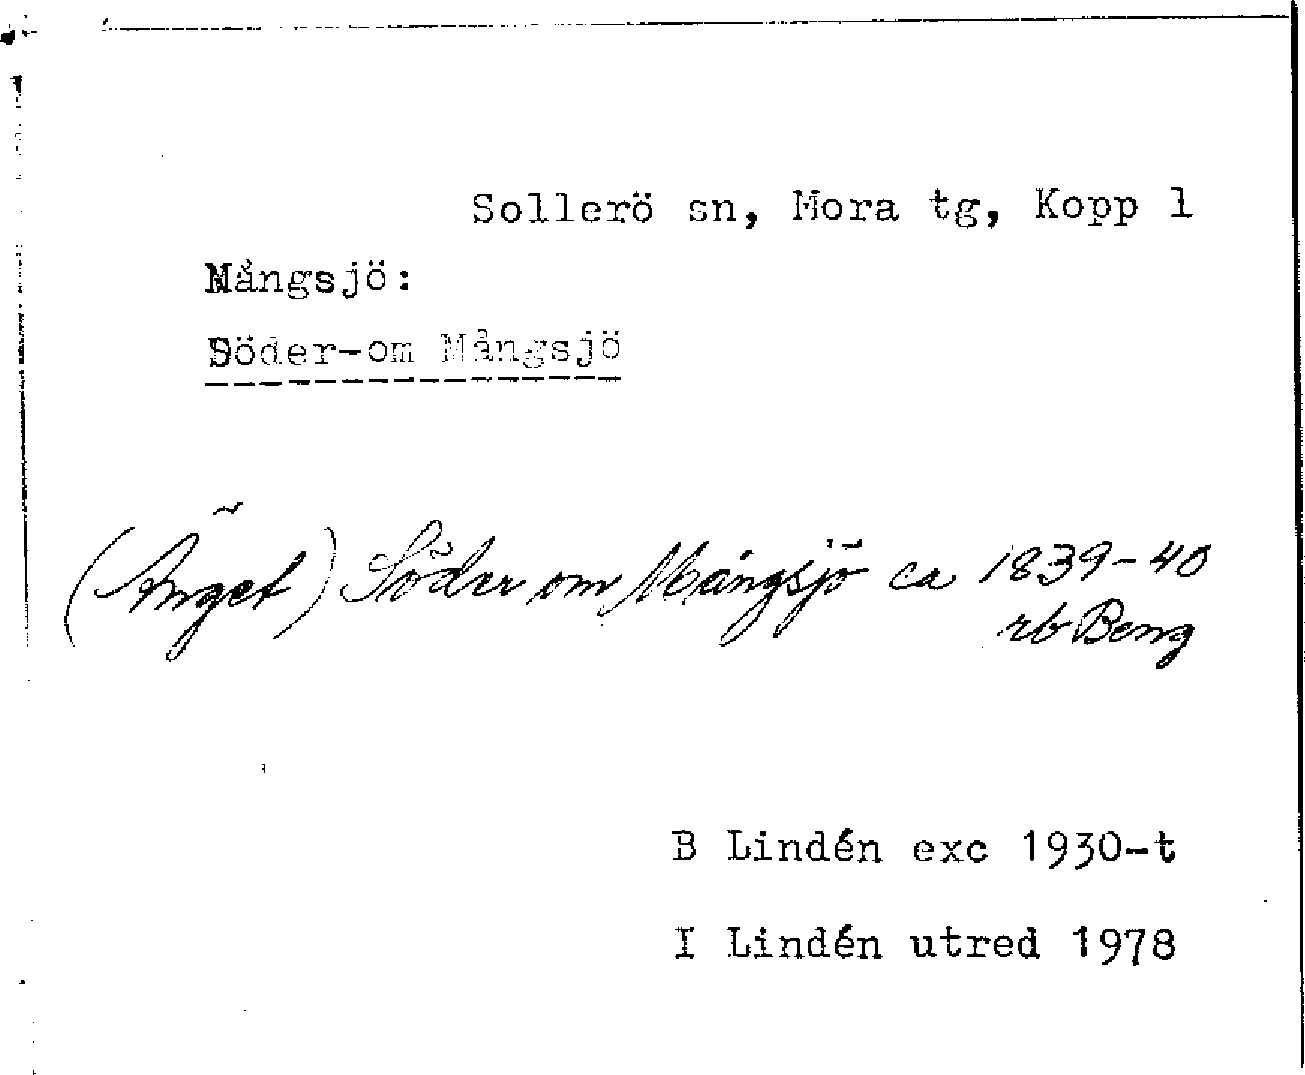 Sollerö sn, Mora tg, Kopp l
Mångsjö:
Söder-om Mångsjö
(Änget) Söder om Mångsjö ca 1839-40
rb Beng
B Lindén exc 1930-t
I Lindén utred 1978